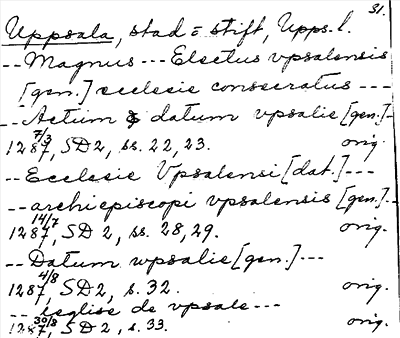 31.
Uppsala, stad = stift, Upps. l.
-- Magnus --- Electus vpsalensis
[gen.] ecclesie consecratus ---
-- Actum & datum vpsalie [gen.] -
7/3
1287, SD 2, ss. 22, 23. orig.
-- Ecclesie Vpsalensi [dat.] ---
-- archiepiscopi vpsalensis [gen.] --
14/7
1287, SD 2, ss. 28, 29. orig.
-- Datum wpsalie [gen.] ---
4/8
1287, SD 2, s. 32. orig.
-- leglise de vpsale ---
30/8
1287, SD 2, s. 33. orig.